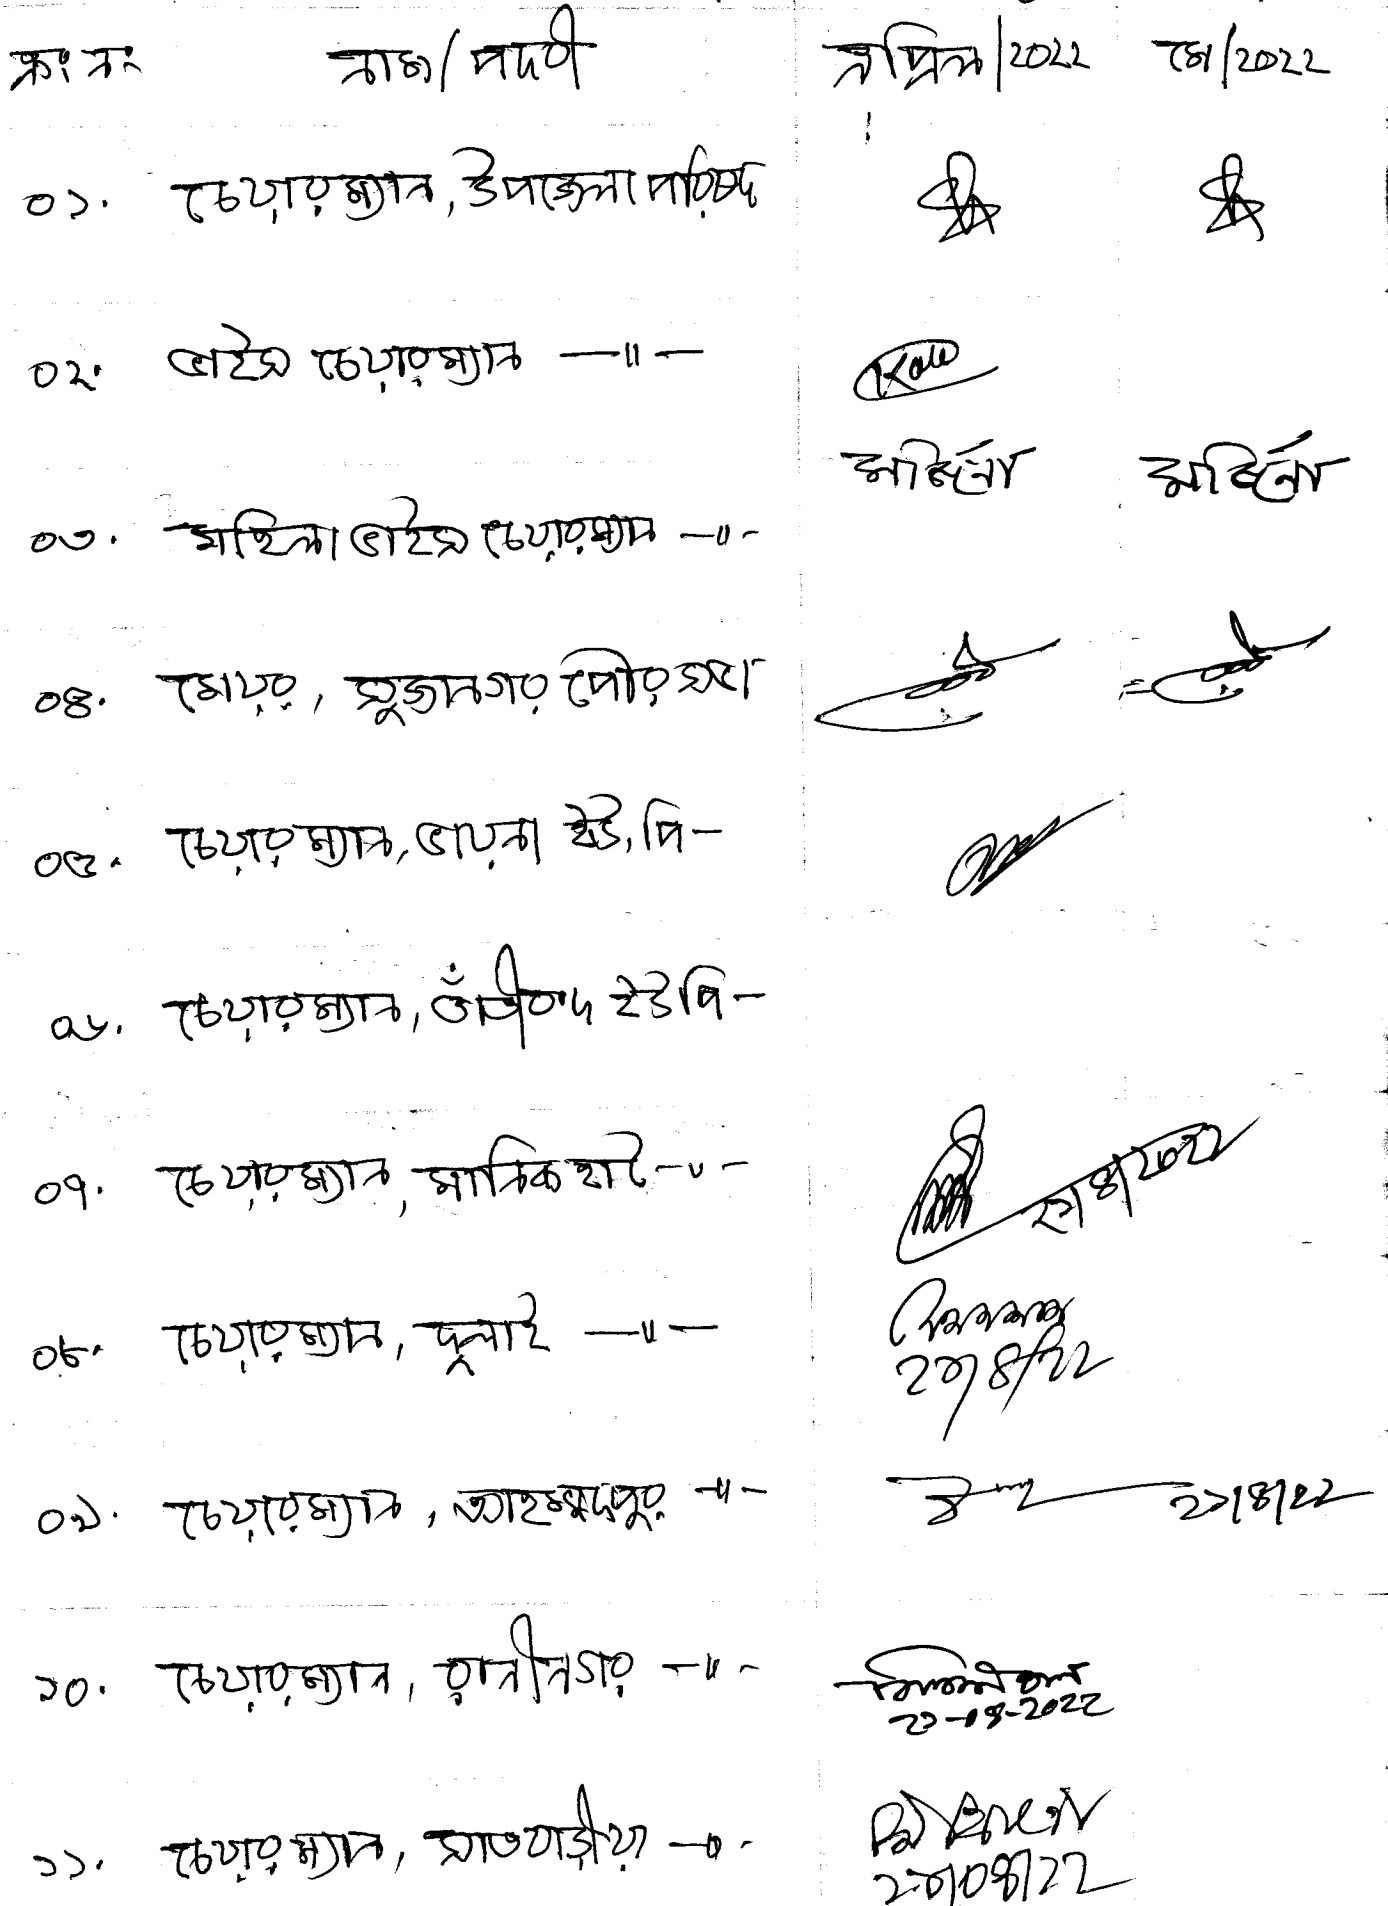 ক্রঃ নং নাম/পদবী এপ্রিল/2022 মে/2022
০১. চেয়ারম্যান, উপজেলা পরিষদ
০২. ভাইস চেয়ারম্যান —〃—
মর্জিনা মর্জিনা
০৩. মহিলা ভাইস চেয়ারম্যান —〃-
০৪. মেয়র, সুজানগর পৌরসভা
০৫. চেয়ারম্যান, ভায়না ইউ,পি—
০৬. চেয়ারম্যান, তাঁতীবন্দ ইউপি—
০৭. চেয়ারম্যান, মানিকহাট —〃—
০৮. চেয়ারম্যান, দুলাই —〃—
০৯. চেয়ারম্যান, আহম্মদপুর —〃— ২১/৪/22
১০. চেয়ারম্যান, রানীনগর —〃-
২১-০৪-2022
১১. চেয়ারম্যান, সাতবাড়ীয়া —〃-